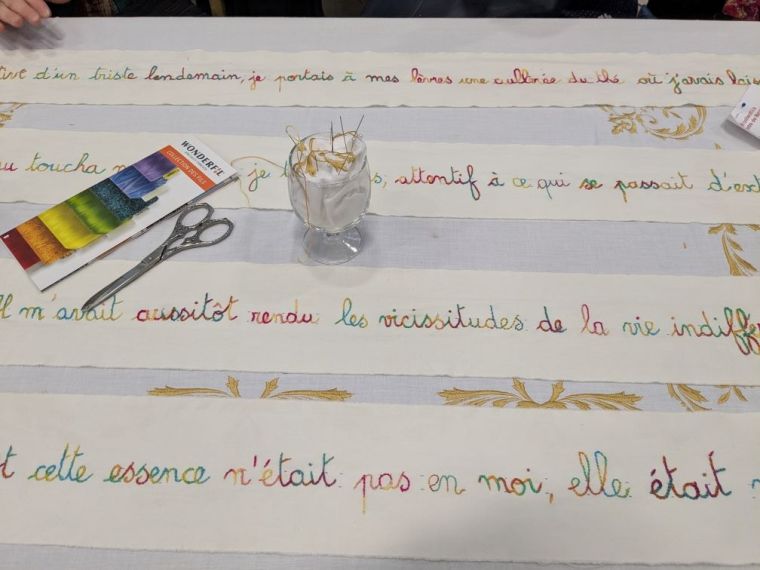 d'un triste lendemain, je portais à mes lèvres une cuillerée du thé où j'avais lais
toucha
je
attentif à ce qui se passait d'ext
WONDERFIL
COLLECTION DES FILS
Il m'avait aussitôt rendu les vicissitudes de la vie indiffé
t cette essence n'était pas en moi, elle était